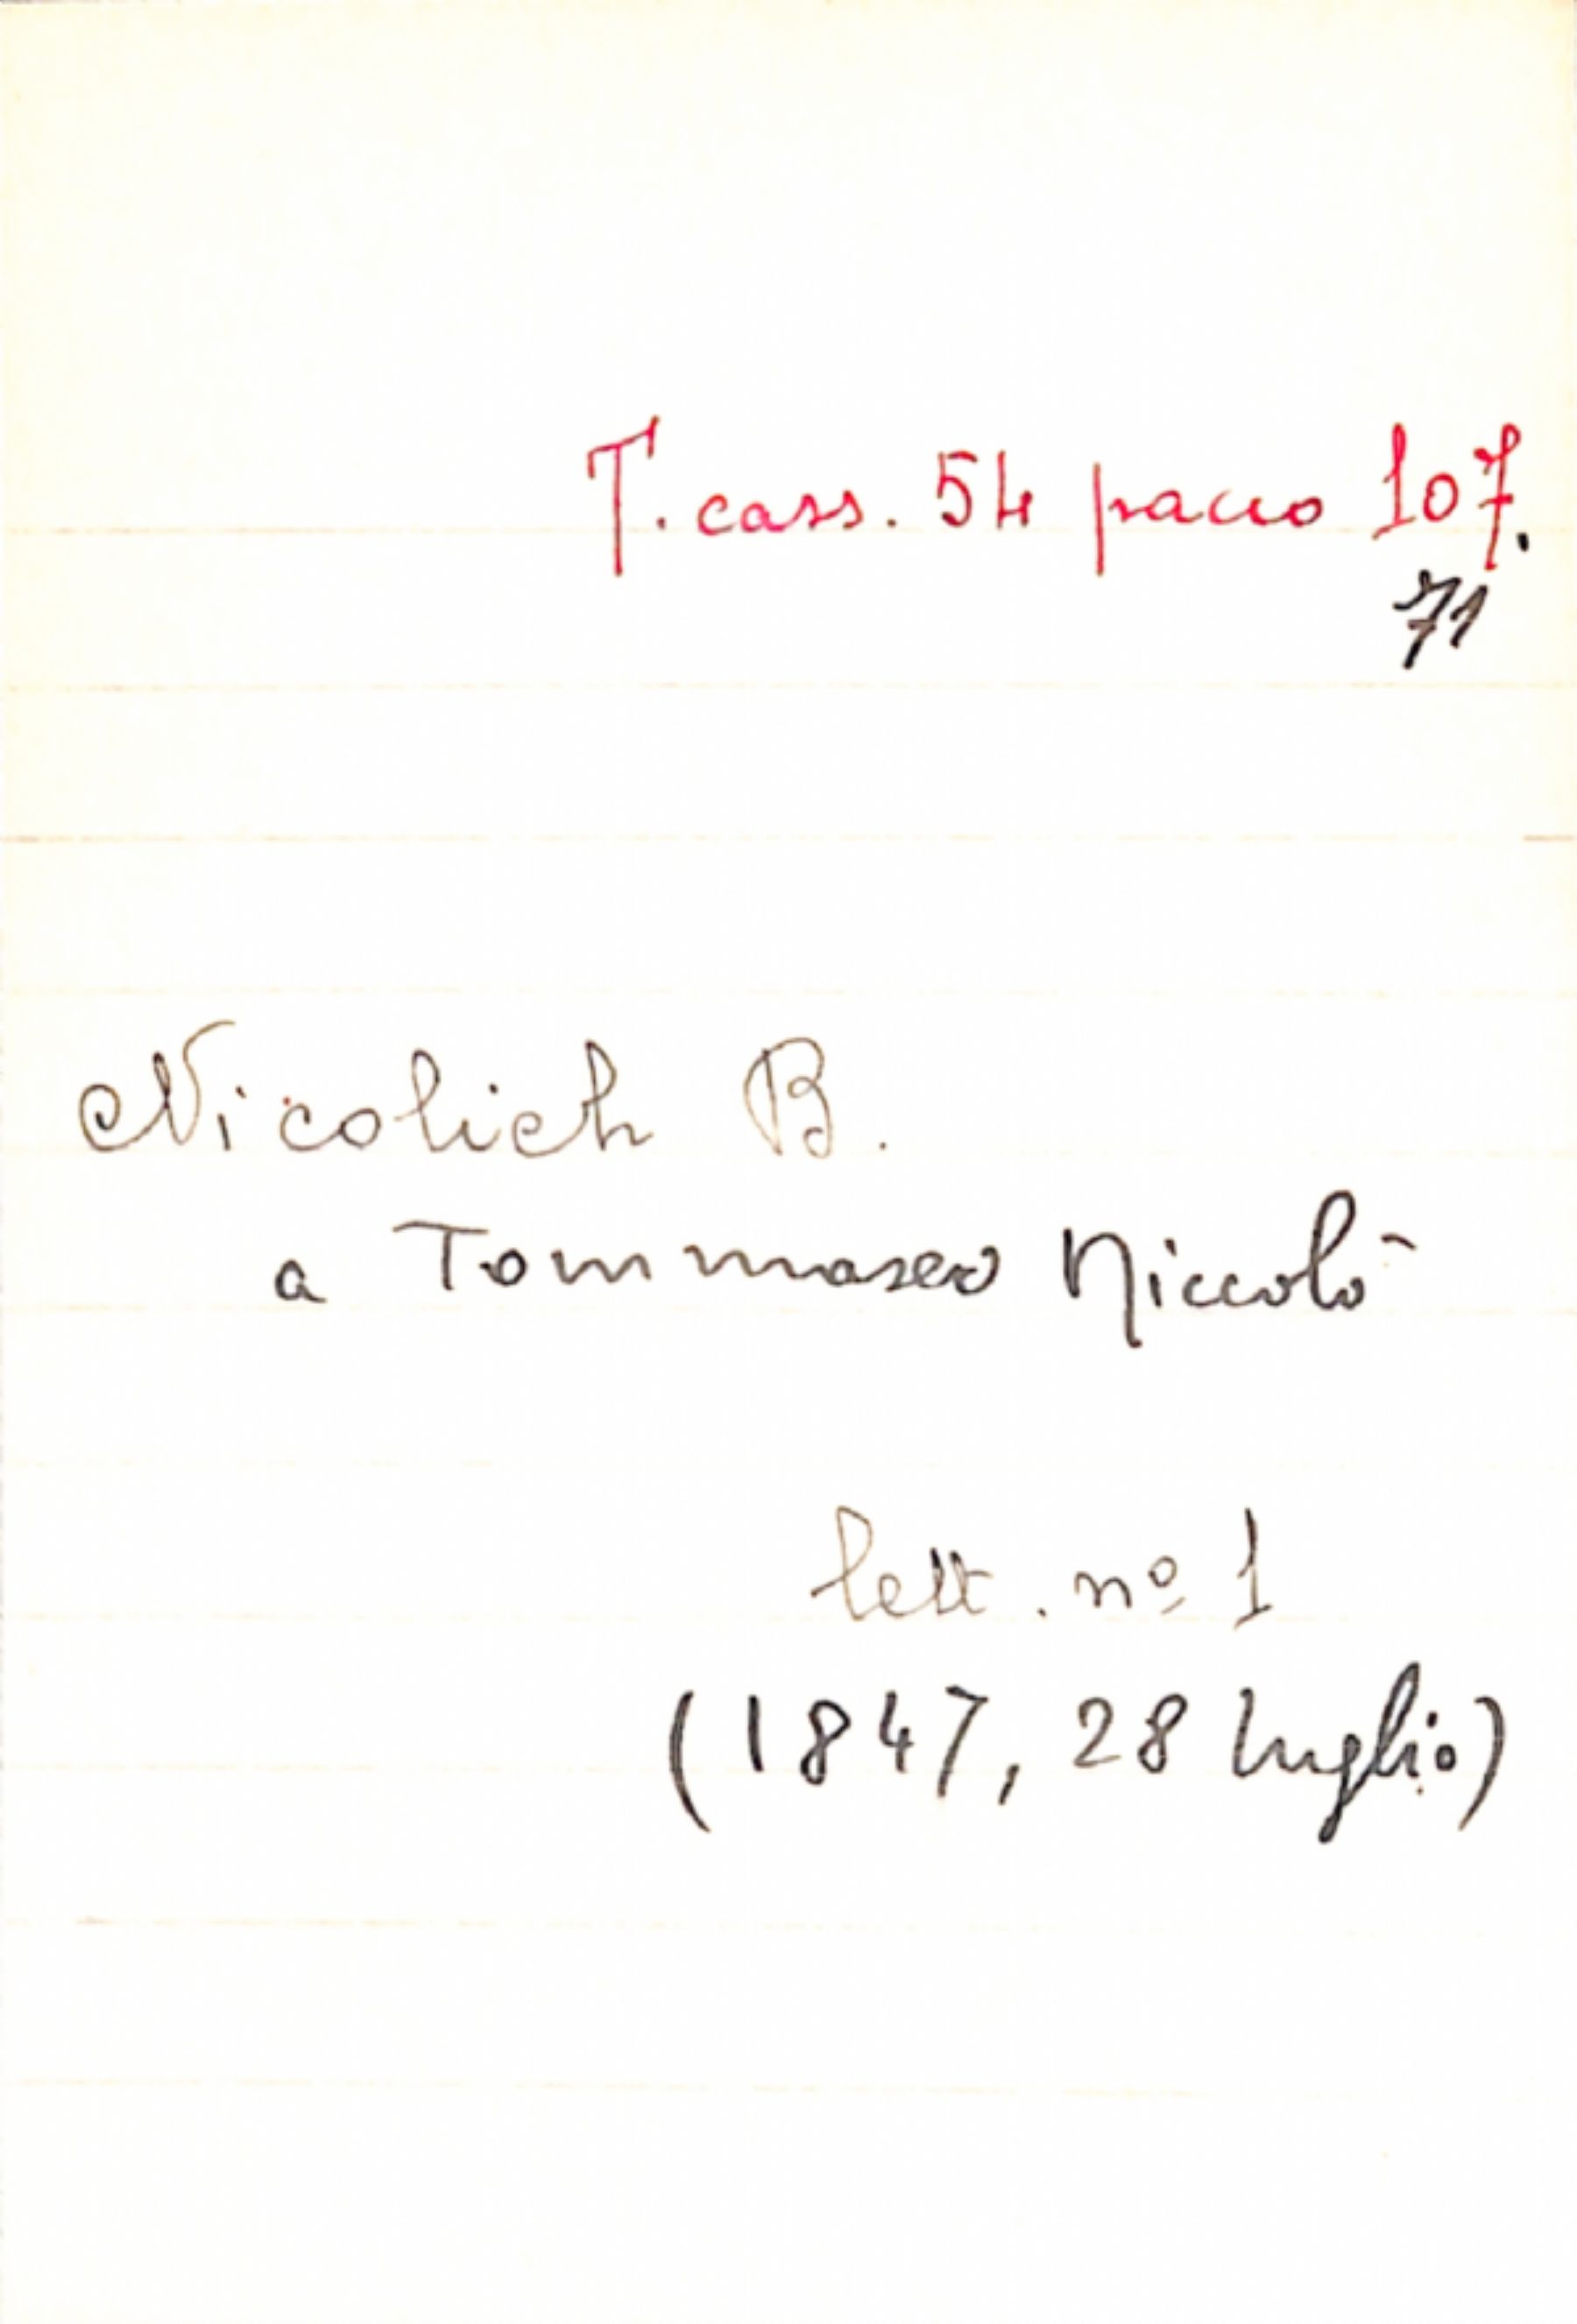 T. cass. 54 pacco 107.
71
Nicolich B.
a Tommaseo Niccolò
lett. nº 1
(1847, 28 luglio)